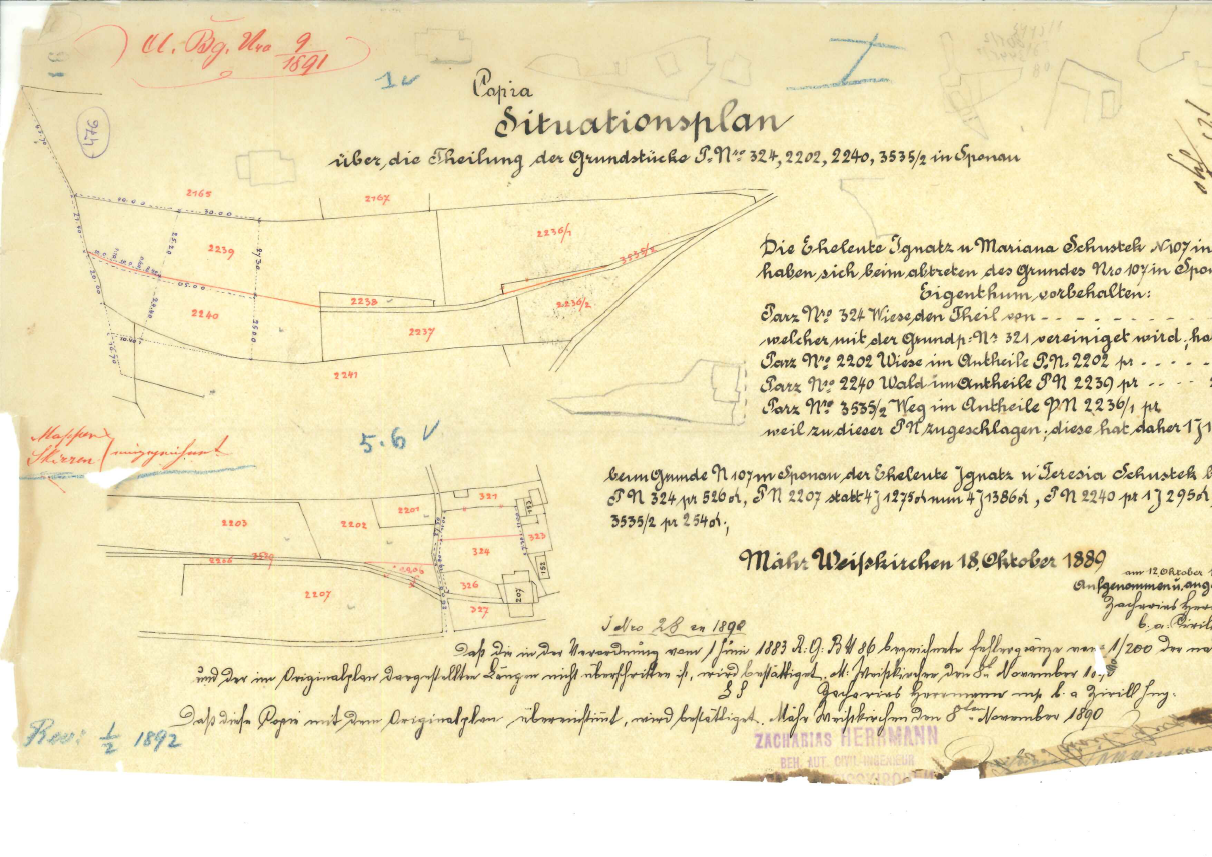 A. Bg. Nro 9/1891
1
I
476
Copia
Situationsplan
über die Theilung der Grundstücke P. Nro 324, 2202, 2240, 3535/2 in Sponau
2165
2167
10.00
30.00
2239
25.20
27.30
2236/1
3535/2
2238
2236/2
2240
2237
05.00
20.00
25.00
2241
Die Eheleute Ignatz u Mariana Schustek N 107 in
haben sich beim abtreten des Grundes Nro 107 in Spon
Eigenthum vorbehalten:
Parz Nro 324 Wiese, den Theil von - - -
welcher mit der Grundp: Nr 321 vereiniget wird, ha
Parz Nro 2202 Wiese im Antheile P.N. 2202 pr - - -
Parz Nro 2240 Wald im Antheile PN 2239 pr - - -
Parz Nro 3535/2 Weg im Antheile PN 2236/1 pr
weil zu dieser PN zugeschlagen; diese hat daher 1 J 1
5.6
Mappen
Skizzen
beim Grunde N 107 in Sponau der Eheleute Ignatz u Teresia Schustek b
PN 324 pr 526 □, PN 2207 statt 4 J 1275 □ nun 4 J 1386 □, PN 2240 pr 1 J 295 □,
3535/2 pr 254 □;
2203
2202
2201
321
152
324
323
2206
326
152
2207
327
207
Mähr Weißkirchen 18. Oktober 1889
am 12 Oktober 1
Aufgenommen u. ang
Zacharias Herr
J Nro 28 ex 1890
Daß die in der Verordnung vom 1 Juni 1883 R: G: B N 86 bezeichnete Fehlergrenze von 1/200 der
und der im Originalplan dargestellten Längen nicht überschritten ist, wird bestättiget. M: Weißkirchen den 8ten November
LS Zacharias Herrmann mp. b: a Zivill Ing:
Daß diese Copie mit dem Originalplan übereinstimt, wird bestättiget. Mähr Weißkirchen den 8ten November 1890
Rev: 1/2 1892
ZACHARIAS HERRMANN
BEH. AUT. CIVIL-INGENIEUR